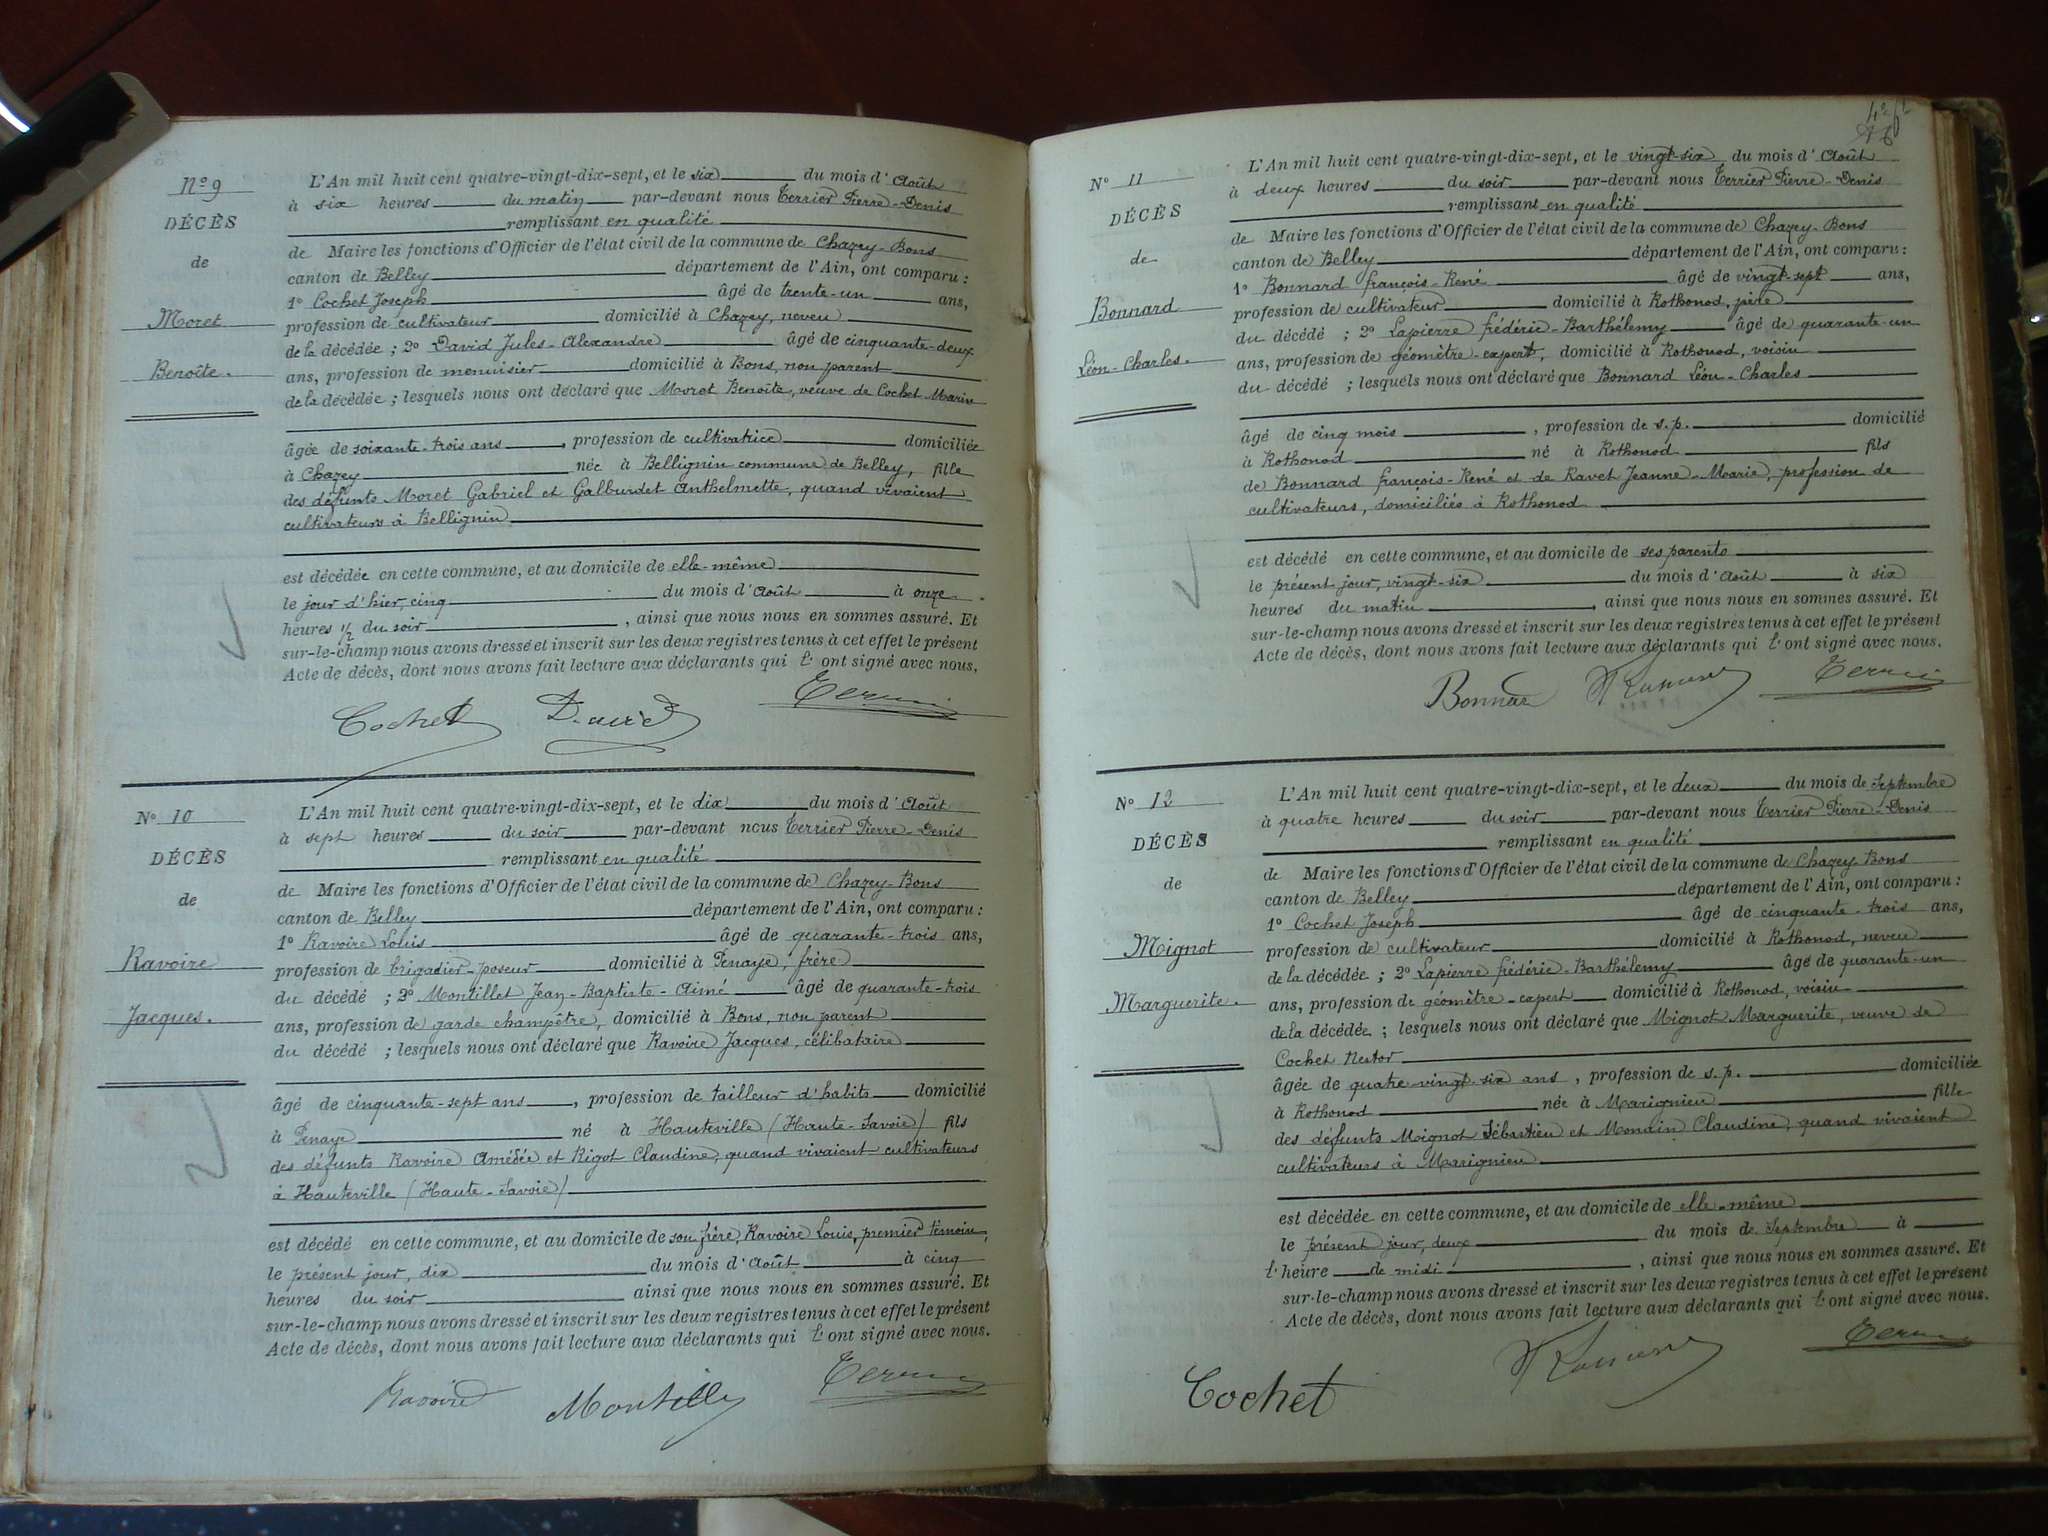 Nº 9
DÉCÈS
de
Moret
Benoîte.
L'An mil huit cent quatre-vingt-dix-sept, et le six du mois d'Août
à six heures du matin par-devant nous Terrier Pierre-Denis
remplissant en qualité
de Maire les fonctions d'Officier de l'état civil de la commune de Chazey-Bons
canton de Belley département de l'Ain, ont comparu :
1º Cochet Joseph âgé de trente-un ans,
profession de cultivateur domicilié à Chazey, neveu
de la décédée ; 2º David Jules-Alexandre âgé de cinquante-deux
ans, profession de menuisier domicilié à Bons, non parent
de la décédée ; lesquels nous ont déclaré que Moret Benoîte, veuve de Cochet Marin
âgée de soixante-trois ans, profession de cultivatrice domiciliée
à Chazey née à Bellignin commune de Belley, fille
des défunts Moret Gabriel et Galburdet Anthelmette, quand vivaient
cultivateurs à Bellignin
est décédée en cette commune, et au domicile de elle-même
le jour d'hier, cinq du mois d'Août à onze
heures 1/2 du soir, ainsi que nous nous en sommes assuré. Et
sur-le-champ nous avons dressé et inscrit sur les deux registres tenus à cet effet le présent
Acte de décès, dont nous avons fait lecture aux déclarants qui l'ont signé avec nous.
Cochet David Terrier
Nº 10
DÉCÈS
de
Ravoire
Jacques.
L'An mil huit cent quatre-vingt-dix-sept, et le dix du mois d'Août
à sept heures du soir par-devant nous Terrier Pierre-Denis
remplissant en qualité
de Maire les fonctions d'Officier de l'état civil de la commune de Chazey-Bons
canton de Belley département de l'Ain, ont comparu :
1º Ravoire Louis âgé de quarante-trois ans,
profession de brigadier-poseur domicilié à Penaye, frère
du décédé ; 2º Montillet Jean-Baptiste-Aimé âgé de quarante-trois
ans, profession de garde champêtre, domicilié à Bons, non parent
du décédé ; lesquels nous ont déclaré que Ravoire Jacques, célibataire
âgé de cinquante-sept ans, profession de tailleur d'habits domicilié
à Penaye né à Hauteville (Haute-Savoie) fils
des défunts Ravoire Amédée et Rigot Claudine, quand vivaient cultivateurs
à Hauteville (Haute-Savoie)
est décédé en cette commune, et au domicile de son frère, Ravoire Louis, premier témoin,
le présent jour, dix du mois d'Août à cinq
heures du soir ainsi que nous nous en sommes assuré. Et
sur-le-champ nous avons dressé et inscrit sur les deux registres tenus à cet effet le présent
Acte de décès, dont nous avons fait lecture aux déclarants qui l'ont signé avec nous.
Ravoire Montillet Terrier
Nº 11
DÉCÈS
de
Bonnard
Léon-Charles.
L'An mil huit cent quatre-vingt-dix-sept, et le vingt-six du mois d'Août
à deux heures du soir par-devant nous Terrier Pierre-Denis
remplissant en qualité
de Maire les fonctions d'Officier de l'état civil de la commune de Chazey-Bons
canton de Belley département de l'Ain, ont comparu :
1º Bonnard françois-René âgé de vingt-sept ans,
profession de cultivateur domicilié à Rothonod, père
du décédé ; 2º Lapierre frédéric-Barthélemy âgé de quarante-un
ans, profession de géomètre-expert, domicilié à Rothonod, voisin
du décédé ; lesquels nous ont déclaré que Bonnard Léon-Charles
âgé de cinq mois, profession de s.p. domicilié
à Rothonod né à Rothonod fils
de Bonnard françois-René et de Ravet Jeanne-Marie, profession de
cultivateurs, domiciliés à Rothonod
est décédé en cette commune, et au domicile de ses parents
le présent jour, vingt-six du mois d'Août à six
heures du matin, ainsi que nous nous en sommes assuré. Et
sur-le-champ nous avons dressé et inscrit sur les deux registres tenus à cet effet le présent
Acte de décès, dont nous avons fait lecture aux déclarants qui l'ont signé avec nous.
Bonnard Lapierre Terrier
Nº 12
DÉCÈS
de
Mignot
Marguerite.
L'An mil huit cent quatre-vingt-dix-sept, et le deux du mois de Septembre
à quatre heures du soir par-devant nous Terrier Pierre-Denis
remplissant en qualité
de Maire les fonctions d'Officier de l'état civil de la commune de Chazey-Bons
canton de Belley département de l'Ain, ont comparu :
1º Cochet Joseph âgé de cinquante-trois ans,
profession de cultivateur domicilié à Rothonod, neveu
de la décédée ; 2º Lapierre frédéric-Barthélemy âgé de quarante-un
ans, profession de géomètre-expert domicilié à Rothonod, voisin
de la décédée ; lesquels nous ont déclaré que Mignot Marguerite, veuve de
Cochet Nestor
âgée de quatre-vingt-six ans, profession de s.p. domiciliée
à Rothonod née à Marignieu fille
des défunts Moignot Sébastien et Monain Claudine, quand vivaient
cultivateurs à Marignieu
est décédée en cette commune, et au domicile de elle-même
le présent jour, deux du mois de Septembre à
l'heure de midi, ainsi que nous nous en sommes assuré. Et
sur-le-champ nous avons dressé et inscrit sur les deux registres tenus à cet effet le présent
Acte de décès, dont nous avons fait lecture aux déclarants qui l'ont signé avec nous.
Cochet Lapierre Terrier